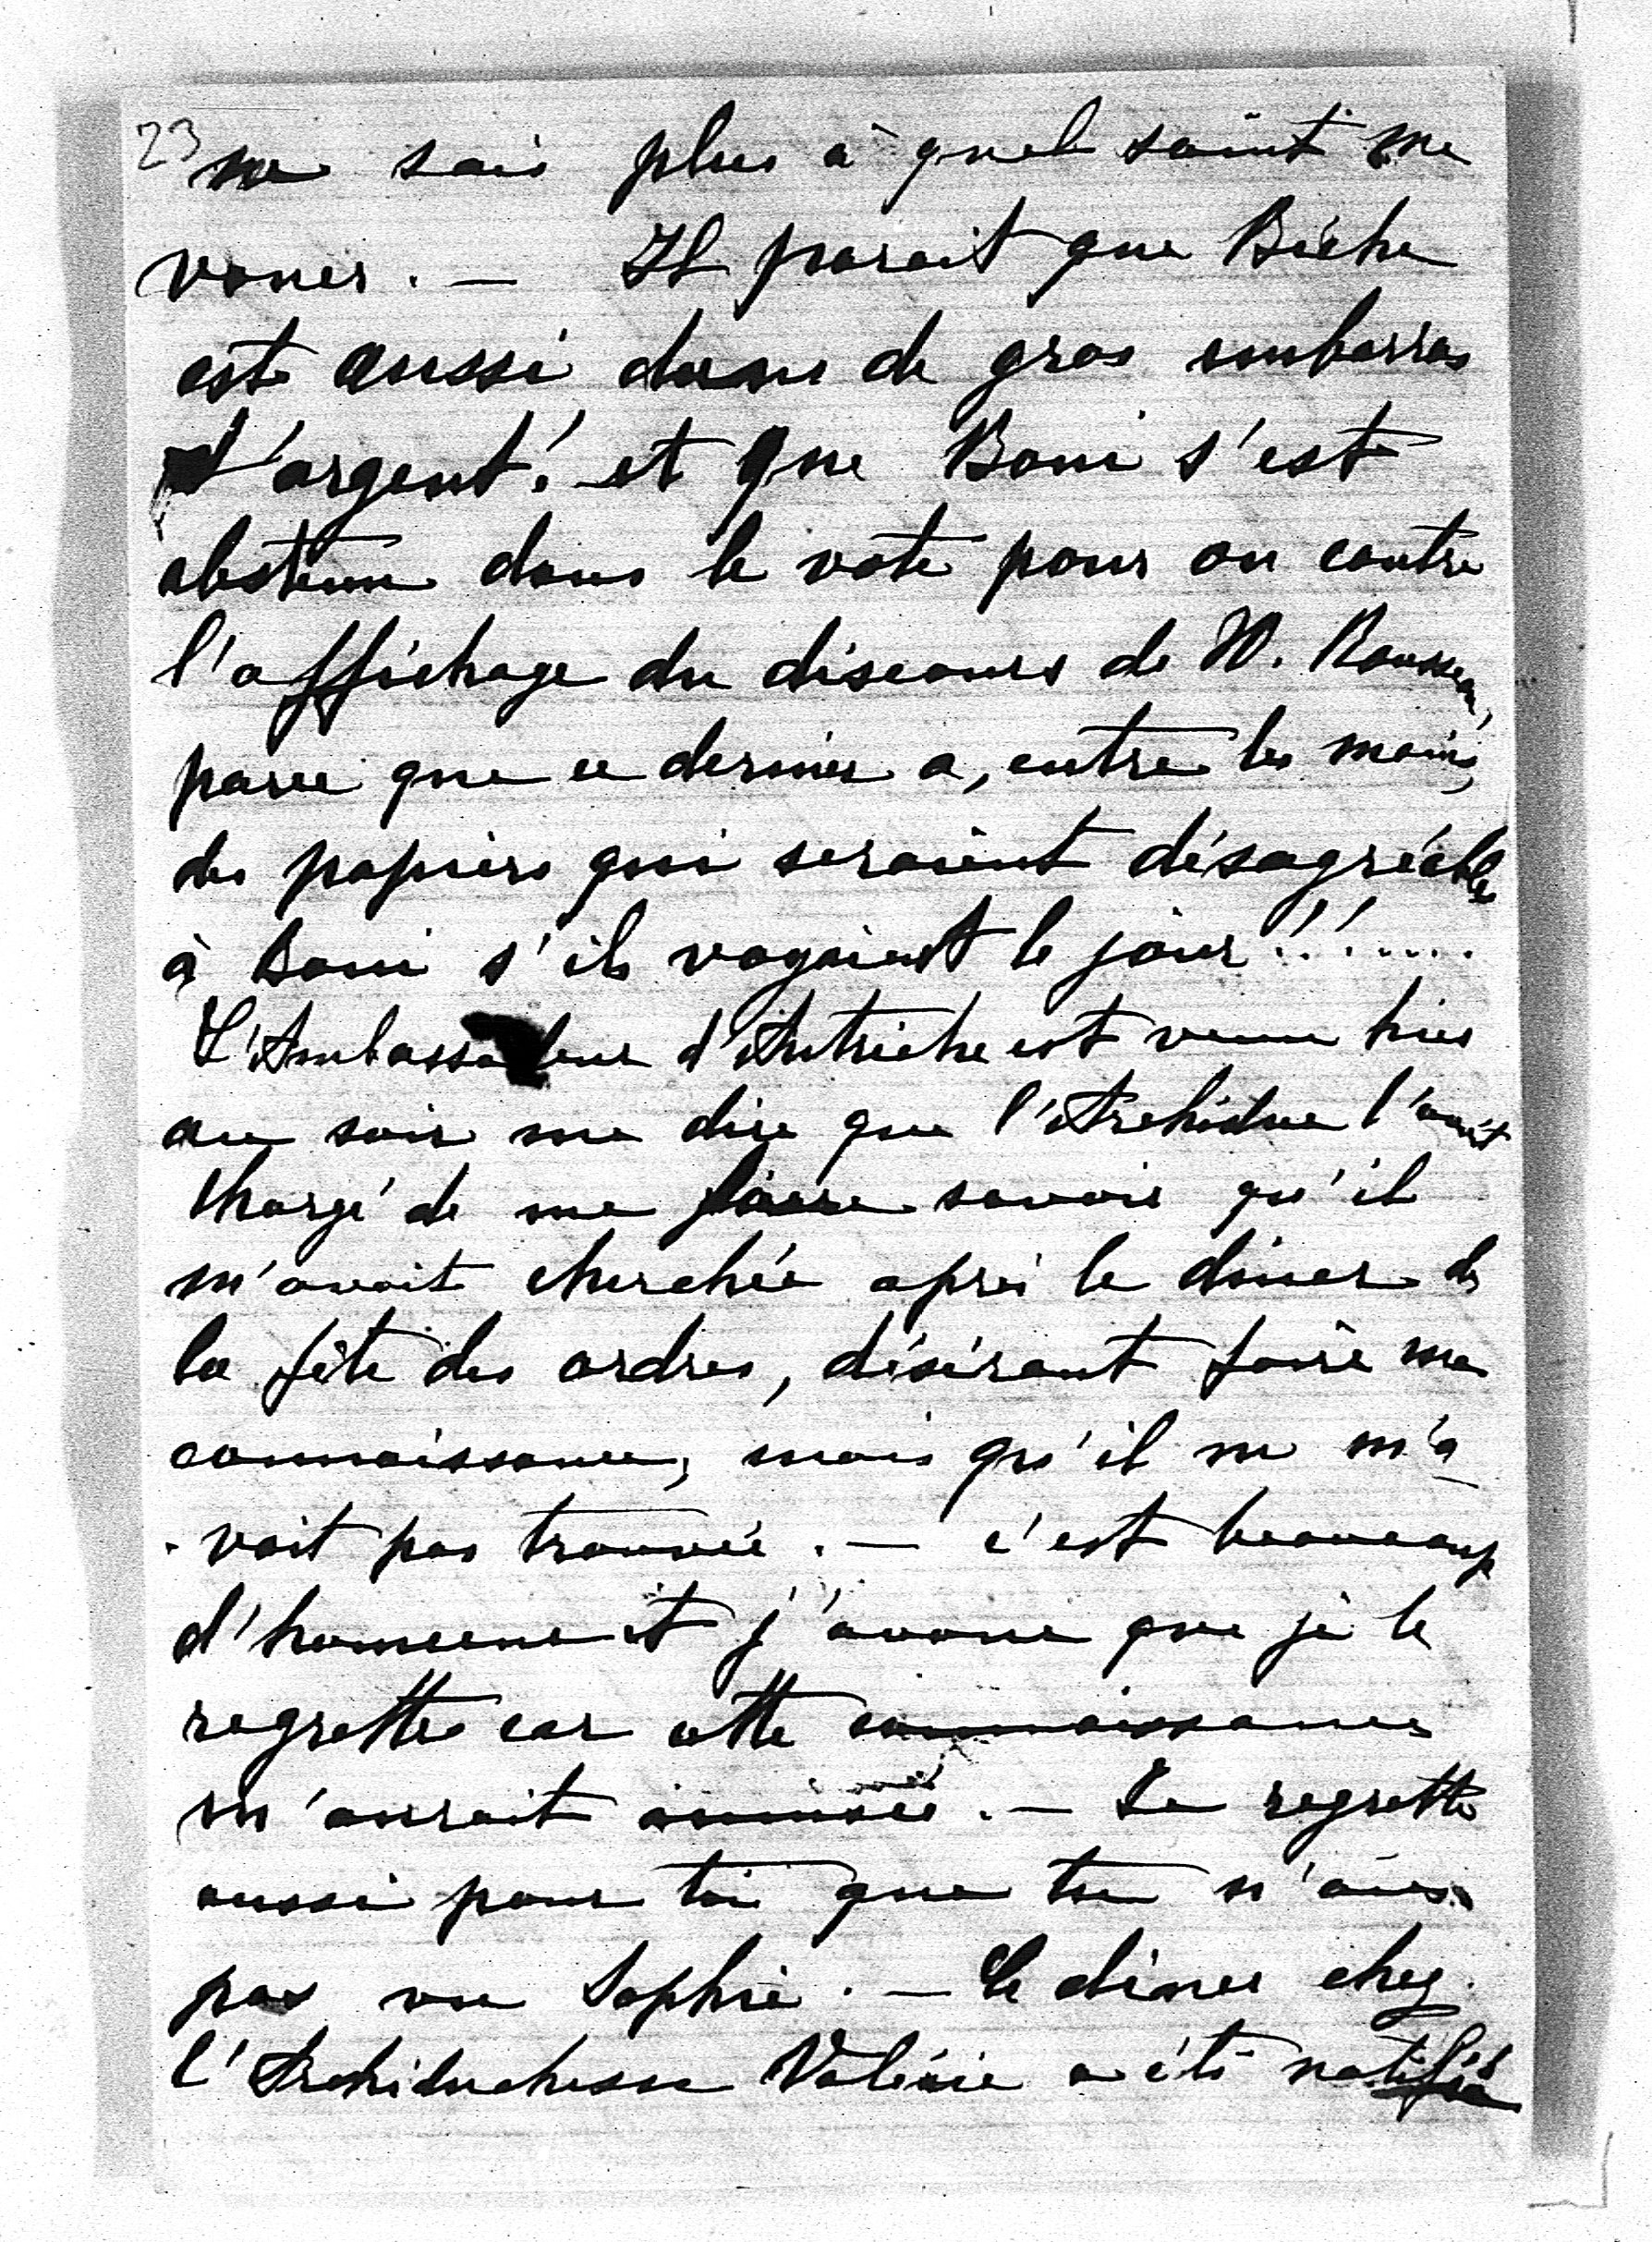 23
ne sais plus à quel saint me
vouer. — Il parait que Biche
est aussi dans de gros embarras
d'argent! et que Boni s'est
abstenu dans le vote pour ou contre
l'affichage du discours de W. Rousseau,
parce que ce dernier a, entre les mains,
des papiers qui seraient désagréables
à Boni s'ils voyaient le jour!!......
L'Ambassadeur d'Autriche est venu hier
au soir me dire que l'Archiduc l'avait
chargé de me faire savoir qu'il
m'avait cherchée après le diner de
la fête des ordres, désirant faire ma
connaissance, mais qu'il ne m'a
-vait pas trouvée. — c'est beaucoup
d'honneur et j'avoue que je le
regrette car cette connaissance
m'aurait amusée. — Je regrette
aussi pour toi que tu n'aies
pas vu Sophie. — Le diner chez
l'Archiduchesse Valérie a été notifié